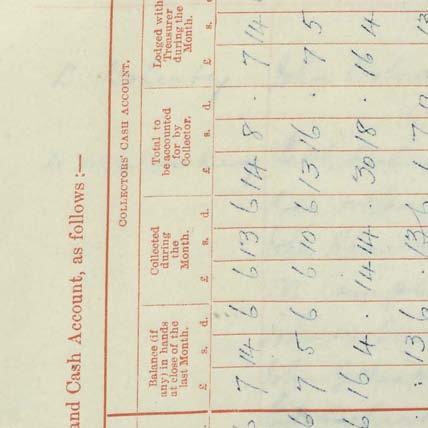 and Cash Account, as follows :—
COLLECTORS' CASH ACCOUNT.
Balance (if any) in hands at close of the last Month.
Collected during the Month.
Total to be accounted for by Collector.
Lodged with Treasurer during the Month.
£ s. d. £ s. d. £ s. d. £ s.
7 14 6 6 13 6 14 8 . 7 14
7 5 6 6 10 6 13 16 . 7 5
16 4 . 14 14 . 30 18 . 16 4
. 13 6 . 13 6 1 7 13